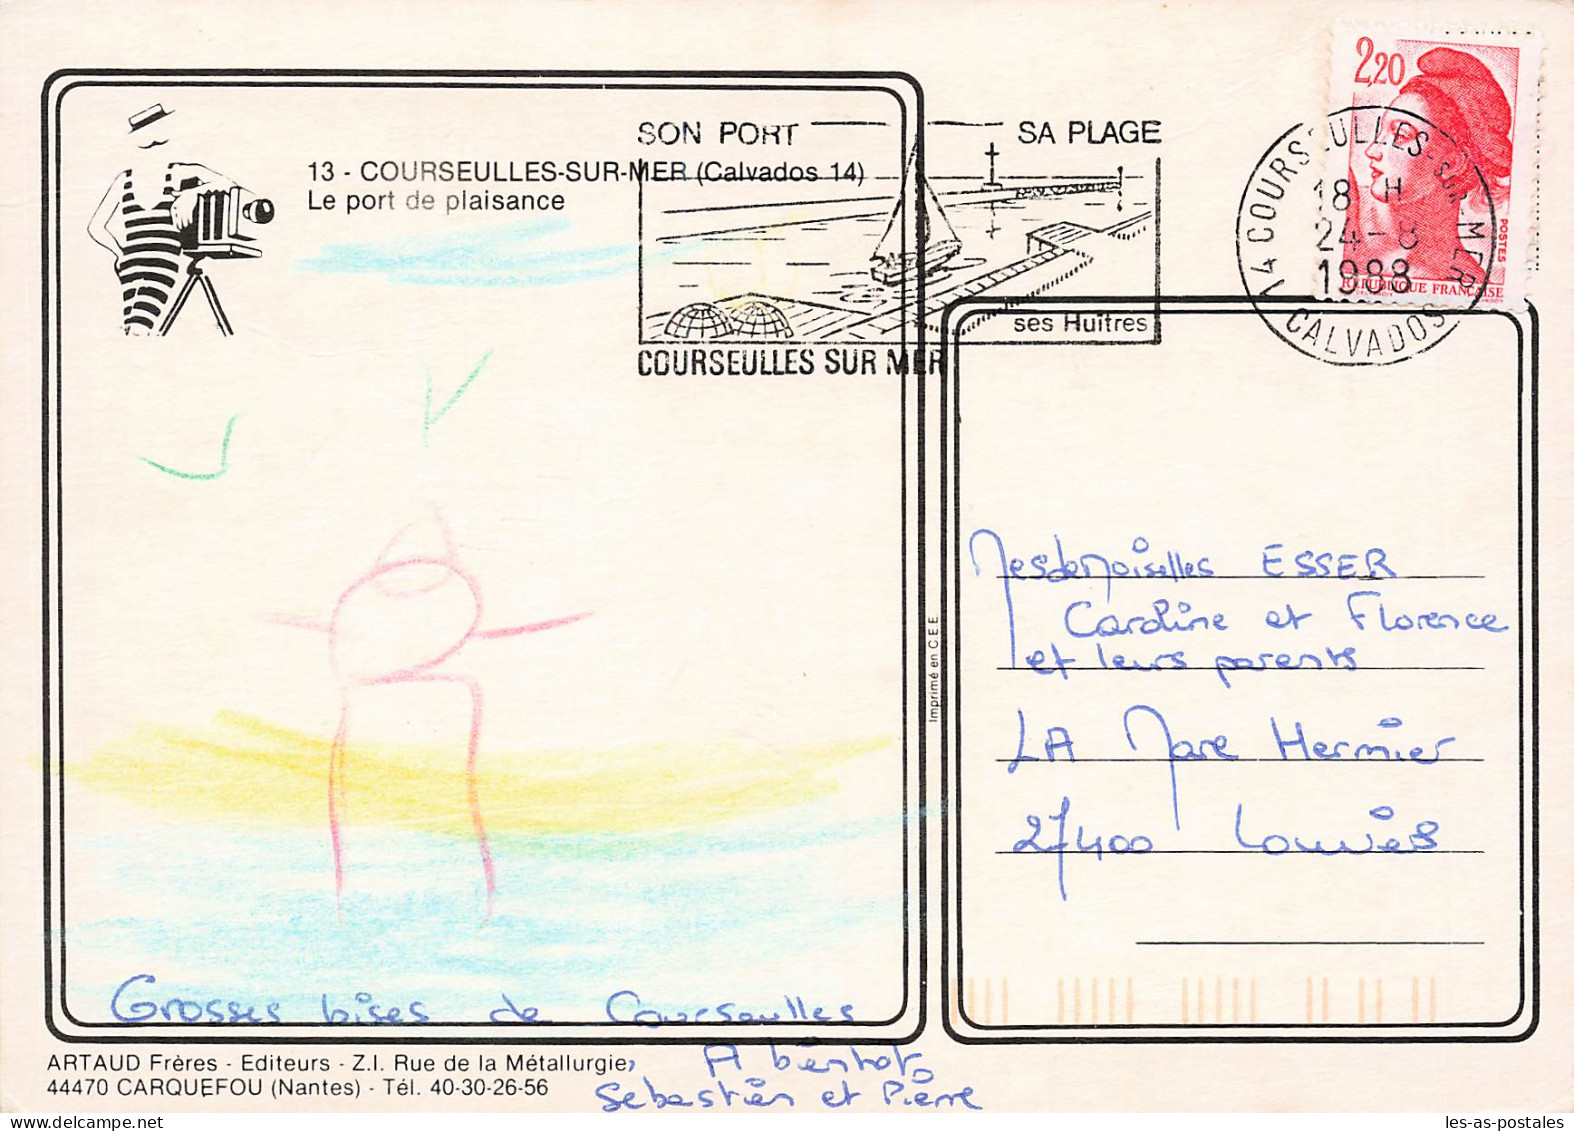 13 - COURSEULLES-SUR-MER (Calvados 14)
Le port de plaisance
SON PORT
SA PLAGE
ses Huîtres
COURSEULLES SUR MER
2,20
POSTES
REPUBLIQUE FRANÇAISE
14 COURSEULLES-SUR-MER
18 H
24-8
1988
CALVADOS
Mesdemoiselles ESSER
Caroline et Florence
et leurs parents
LA Mare Hermier
27400 Louviers
Imprimé en CEE
Grosses bises de Courseulles
A bientôt,
Sébastien et Pierre
ARTAUD Frères - Editeurs - Z.I. Rue de la Métallurgie,
44470 CARQUEFOU (Nantes) - Tél. 40-30-26-56
les-as-postales